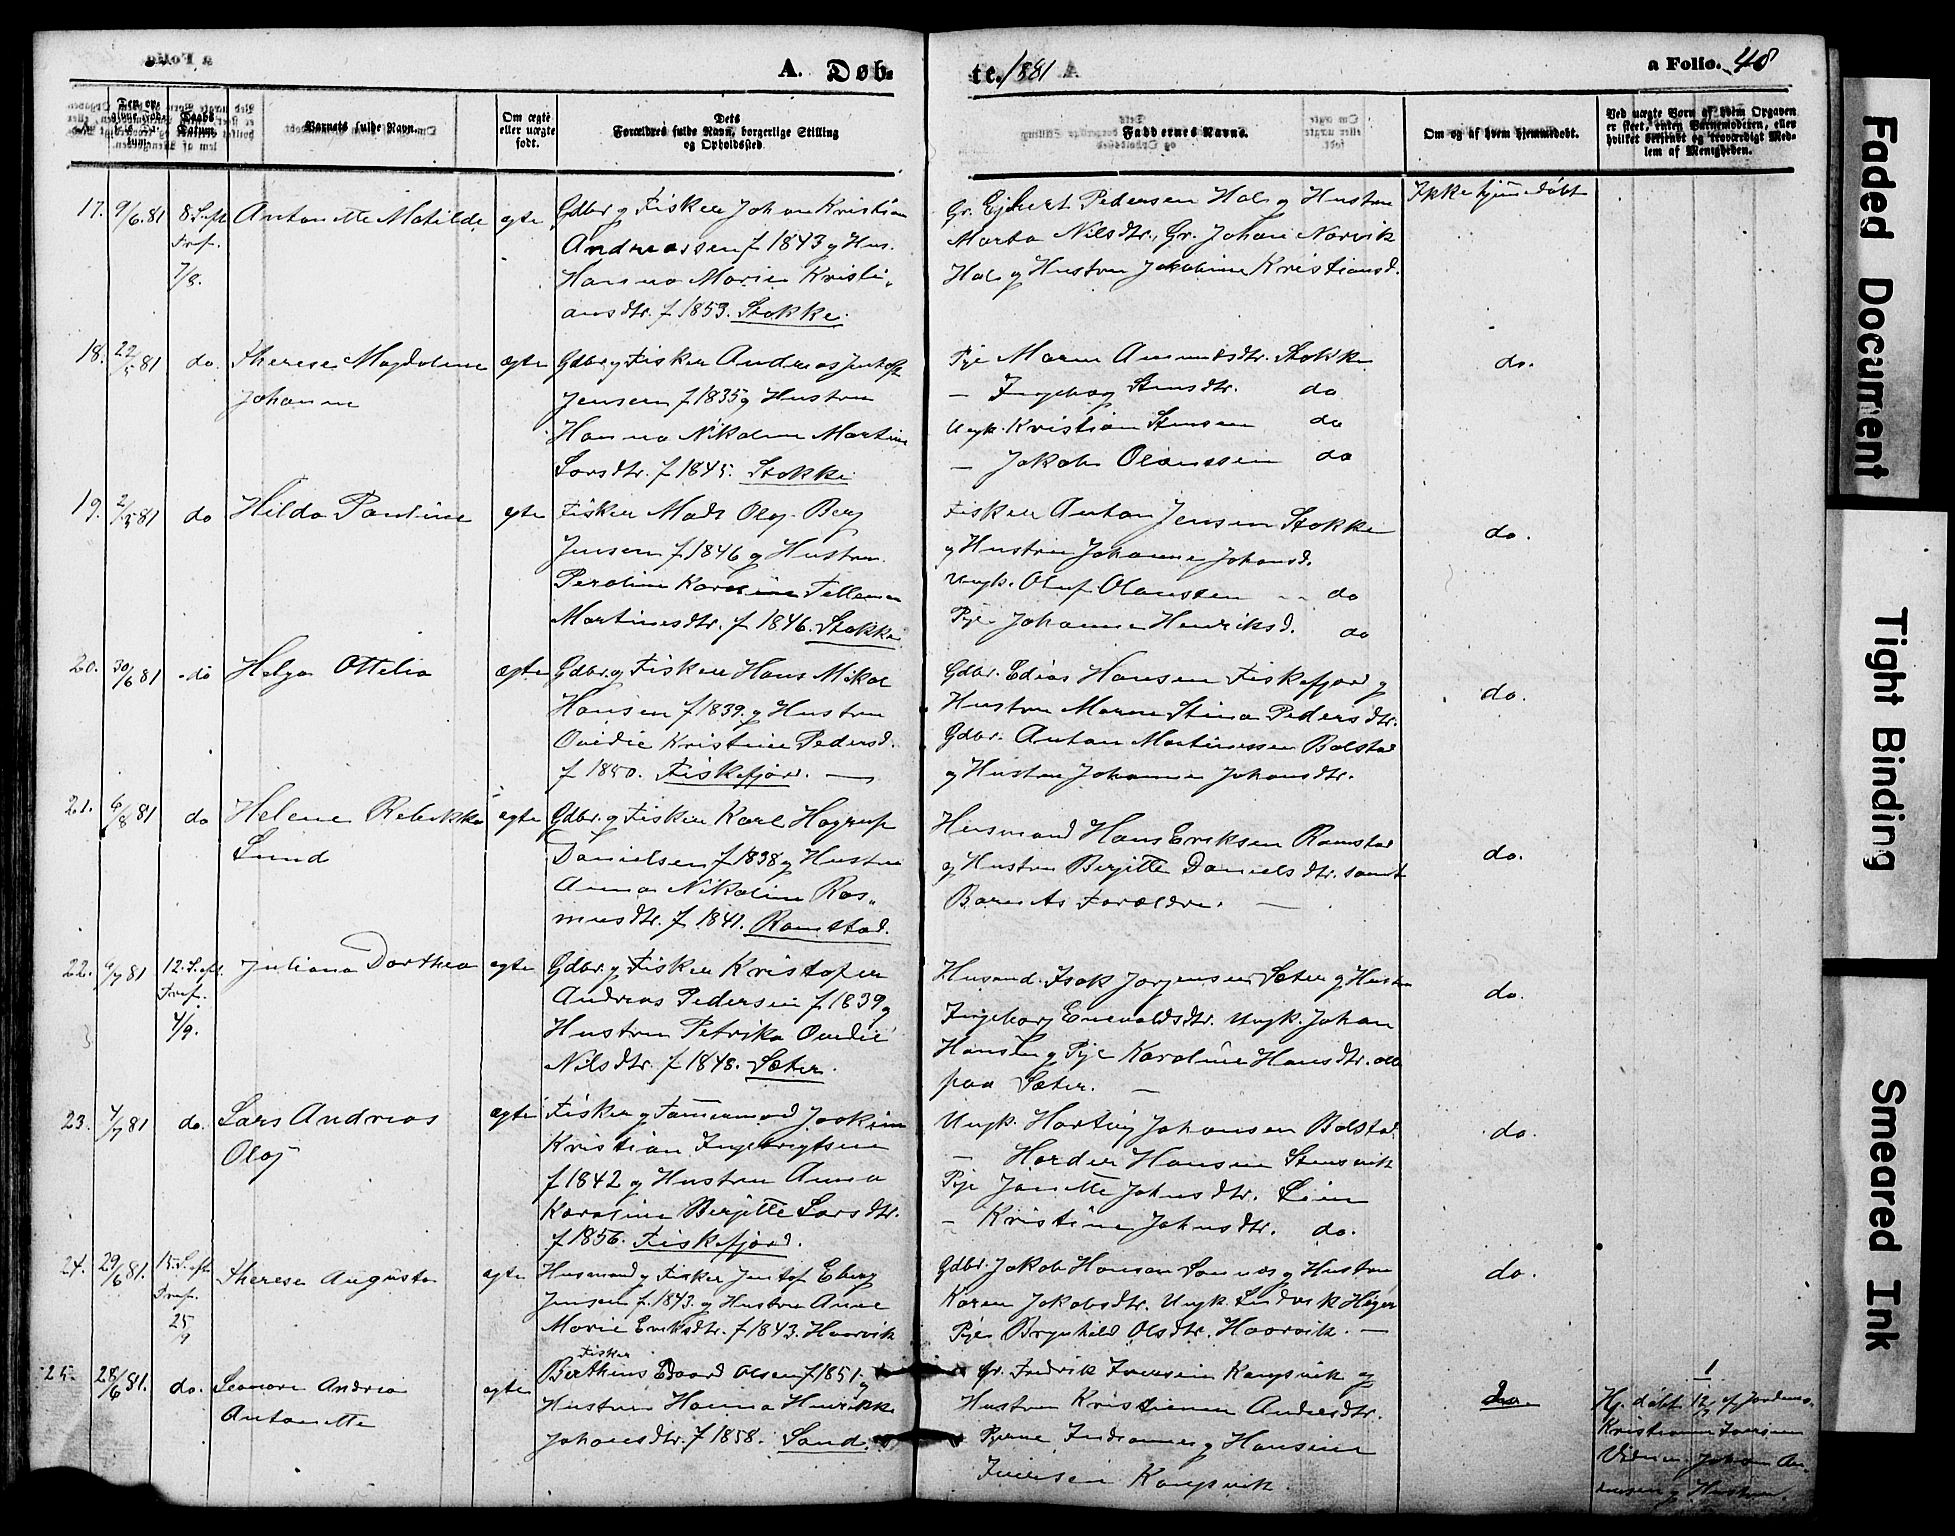 A. Døb-
te. 1881
a Folio. 48
Den op-
Daabs
Datum
Barnets fulde Navn.
Om ægte
eller uægte
født.
Dets
Forældres fulde Navn, borgerlige Stilling
og Opholdssted.
Faddernes Navne.
Om og af hvem hjemmedøbt.
Ved uægte Børn af hvem Opgaven
er skeet, enten Barnemoderen, eller
hvilket berøvende og troværdigt Med-
lem af Menigheden.
17. 9/6.81 8 Sept. Antonette Matilde ægte Gdbr. og Fisker Johan Kristian
Tref. Andreassen f 1843 og Hus.
7/8. Hanna Marie Kristi-
ansdtr. f 1853. Stokke.
Gr. Ejbert Pedersen Hals og Hustru
Marta Nilsdtr., Gr. Johan Narvik
Hals og Hustru Jakobine Kristiansd.
Ikke hjemmedøbt
18. 22/5 81 do. Therese Magdalene ægte Gdbr. og Fisker Andreas Jentoft
Johanna Jensen f 1835 og Hustru
Hanna Nikoline Martine
Larsdtr. f 1845. Stokke
Pige Maren Amundsdtr. Stokke
— Ingeborg Stensdtr. do
Ungk. Kristian Stensen do
— Jakob Olaussen do
do.
19. 2/5 81 do Hilda Pauline ægte Fisker Mads Olaj Berg
Jensen f 1846 og Hustru
Peroline Karoline Tellemea
Martinesdtr. f 1846. Stokke
Fisker Anton Jensen Stokke
og Hustru Johanna Johansd.
Ungk. Oluf Olaussen do
Pige Johanna Henriksd. do
do.
20. 30/6 81 do Helga Ottelia ægte Gdbr. og Fisker Hans Mikal
Hansen f 1839. og Hustru
Ovedie Kristine Pedersd.
f 1850. Fiskefjord. —
Gdbr. Edias Hansen Fiskefjord og
Hustru Maren Stina Pedersdtr.
Gdbr. Anton Martinussen Bolstad
og Hustru Johanna Johansdtr.
do.
21. 6/8 81 do Helene Rebekka ægte Gdbr. og Fisker Karl Hagrup
Lund Danielsen f 1838 og Hustru
Anna Nikoline Ras-
musdtr. f 1841. Ramstad.
Husmand Hans Eriksen Ramstad
og Hustru Berjitte Danielsdtr. samt
Barnets Forældre. —
do.
22. 6/7 81 12. Sept. Juliana Dorthea ægte Gdbr. og Fisker Kristofer
Tref. Andreas Pedersen f 1839 og
4/9. Hustru Petrika Ovedie
Nilsdtr. f 1848. Sæter.
Husmd. Isak Jørgensen Sæter og Hustru
Ingeborg Enevaldsdtr. Ungk. Johan
Hansen og Pige Karoline Hansdtr. alle
paa Sæter. —
do.
23. 4/7 81 do. Lars Andreas ægte Fisker og Tømmermand Joakim
Olaj Kristian Ingebrigtsen
f 1842 og Hustru Anna
Karoline Berjitte Larsdtr.
f 1856. Fiskefjord.
Ungk. Hartvig Johansen Bolstad.
— Harder Hansen Stensvik
Pige Janette Johnsdtr. Liin
— Kristine Johnsdtr. do.
do.
24. 29/6 81. 15. Sept. Therese Augusta ægte Husmand og Fisker Jentof Eberg
Tref. Jensen f. 1843. og Hustru Anne
25/9 Marie Eriksdtr. f 1843. Haarvik
Gdbr. Jakob Hansen Sannes og Hustru
Karen Jakobsdtr. Ungk. Ludvik Høger
Pige Brynhild Olsdtr. Haarvik. —
do.
25. 28/6 81. do. Leonore Andrea ægte Fisker
Antonette Berthius Edvard Olsen f 1851 og
Hustru Hanna Henrikke
Johansdtr. f 1858. Sand.
Gr. Fredrik Iversen Kongsvik og
Hustru Kristianna Andersdtr.
Pigerne Indianna og Hansine
Iversen Kongsvik.
do.
Hj. døbt 12/7 af Jordmo.
Kristianna Iversen
Vidner. Johan An-
dersen og Hustru.
Faded Document
Tight Binding
Smeared Ink